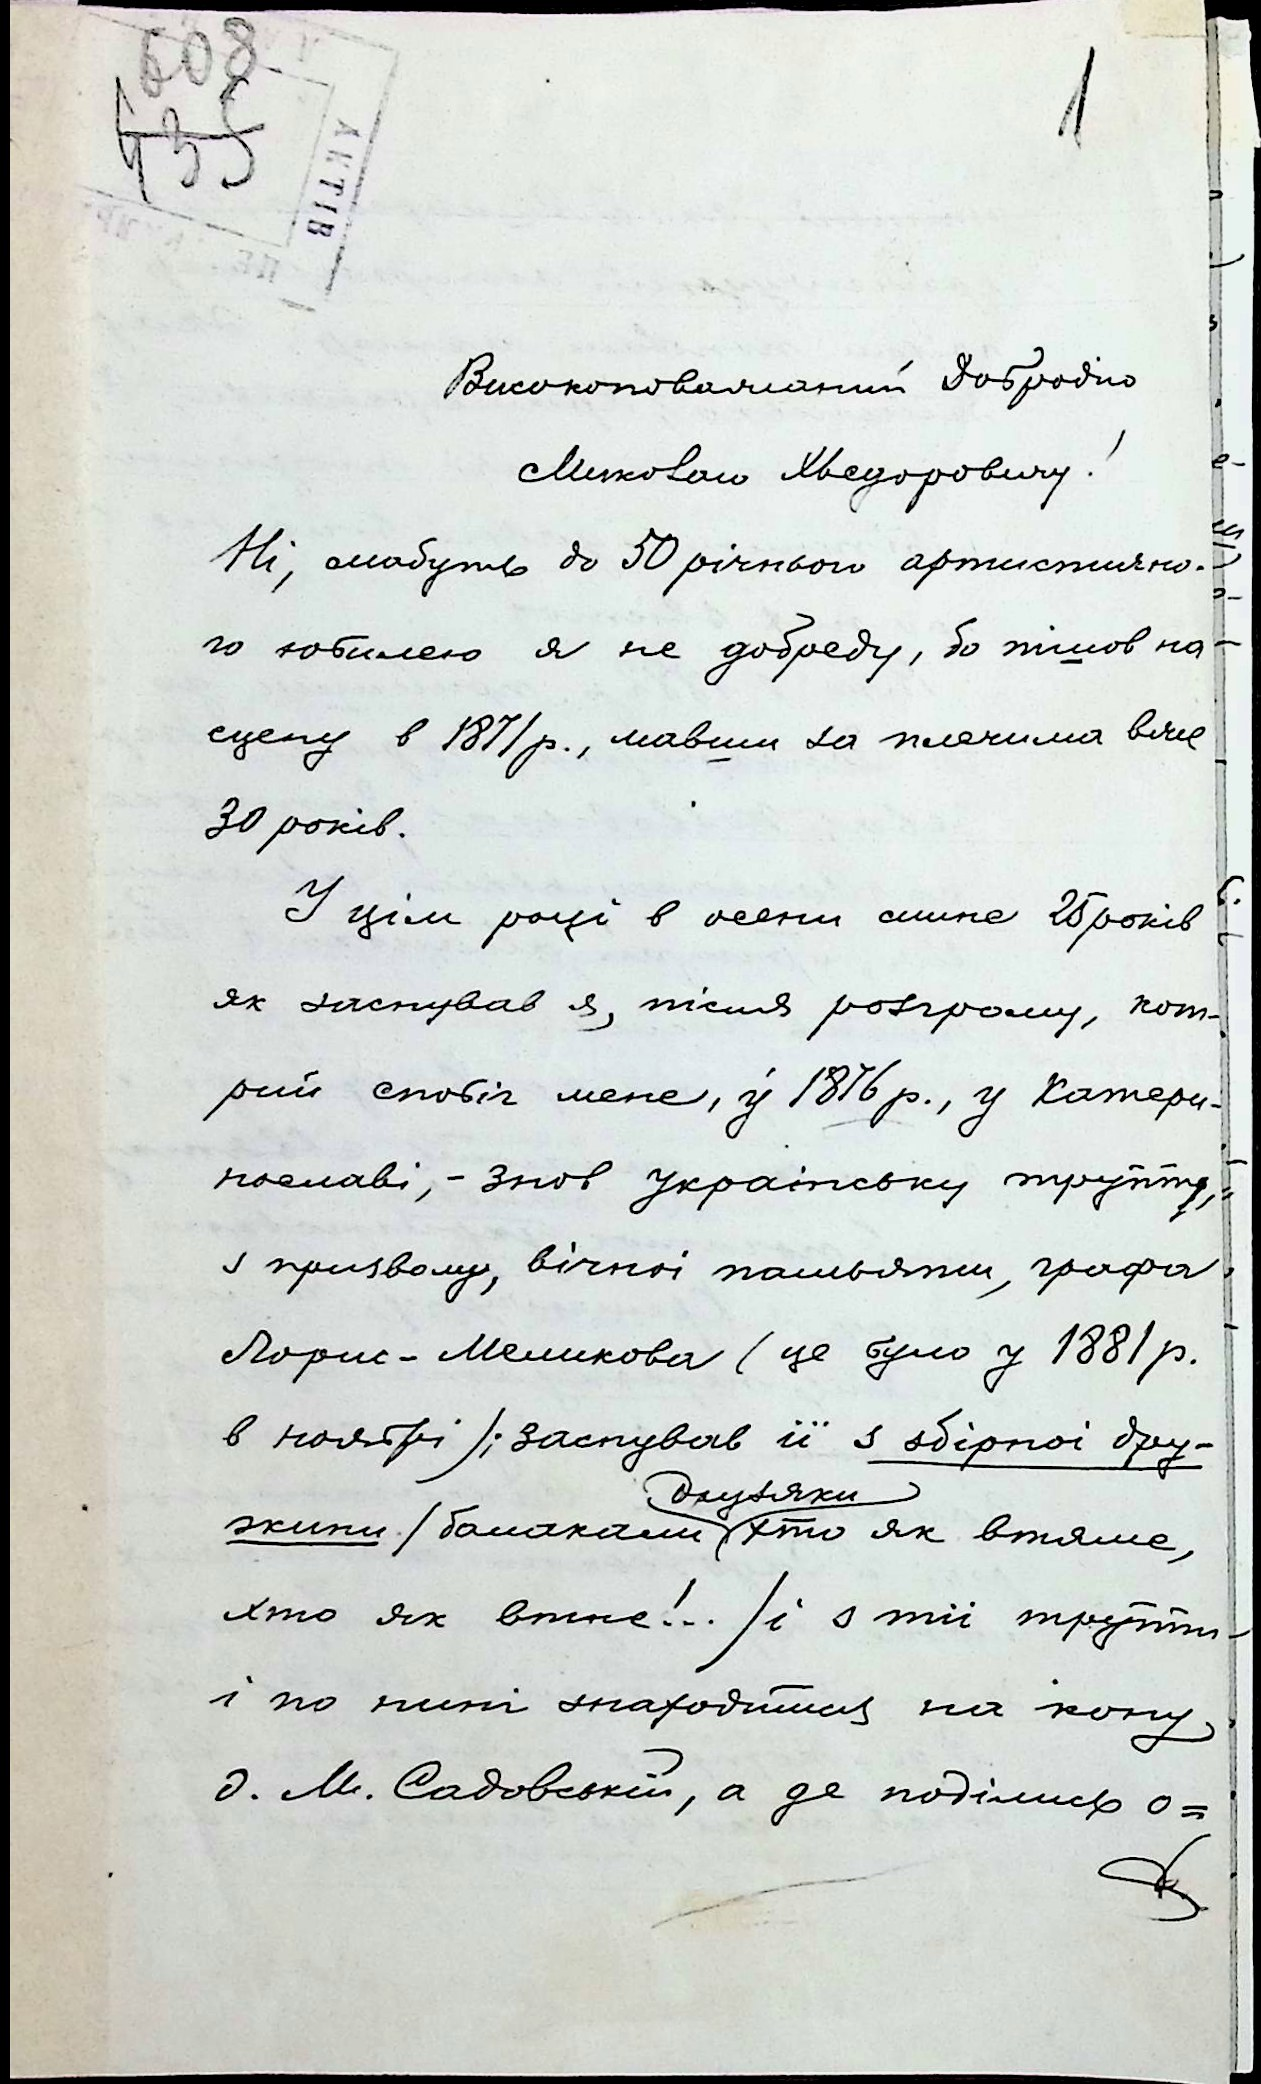 608
735
АКТІВ
1
Високоповажаний Добродію
Миколаю Хведоровичу!
Ні, мабуть до 50 річнього артистично-
го ювилею я не добреду, бо пішов на
сцену в 1871 р., мавши за плечима вже
30 років.
У цім році в осени мине 25 років
як заснував я, після розгрому, кот-
рий спобіг мене, у 1876 р., у Катери-
нославі, - знов українську труппу,
з призволу, вічної памьяти, графа
Лорис-Меликова (це було у 1881 р.
в ноябрі); заснував її з збірної дру-
друзяки
жини (балакали хто як втяме,
хто як втне!.. ) і з тії труппи
і по нині знаходитця на кону
д. М. Садовський, а де поділись о=